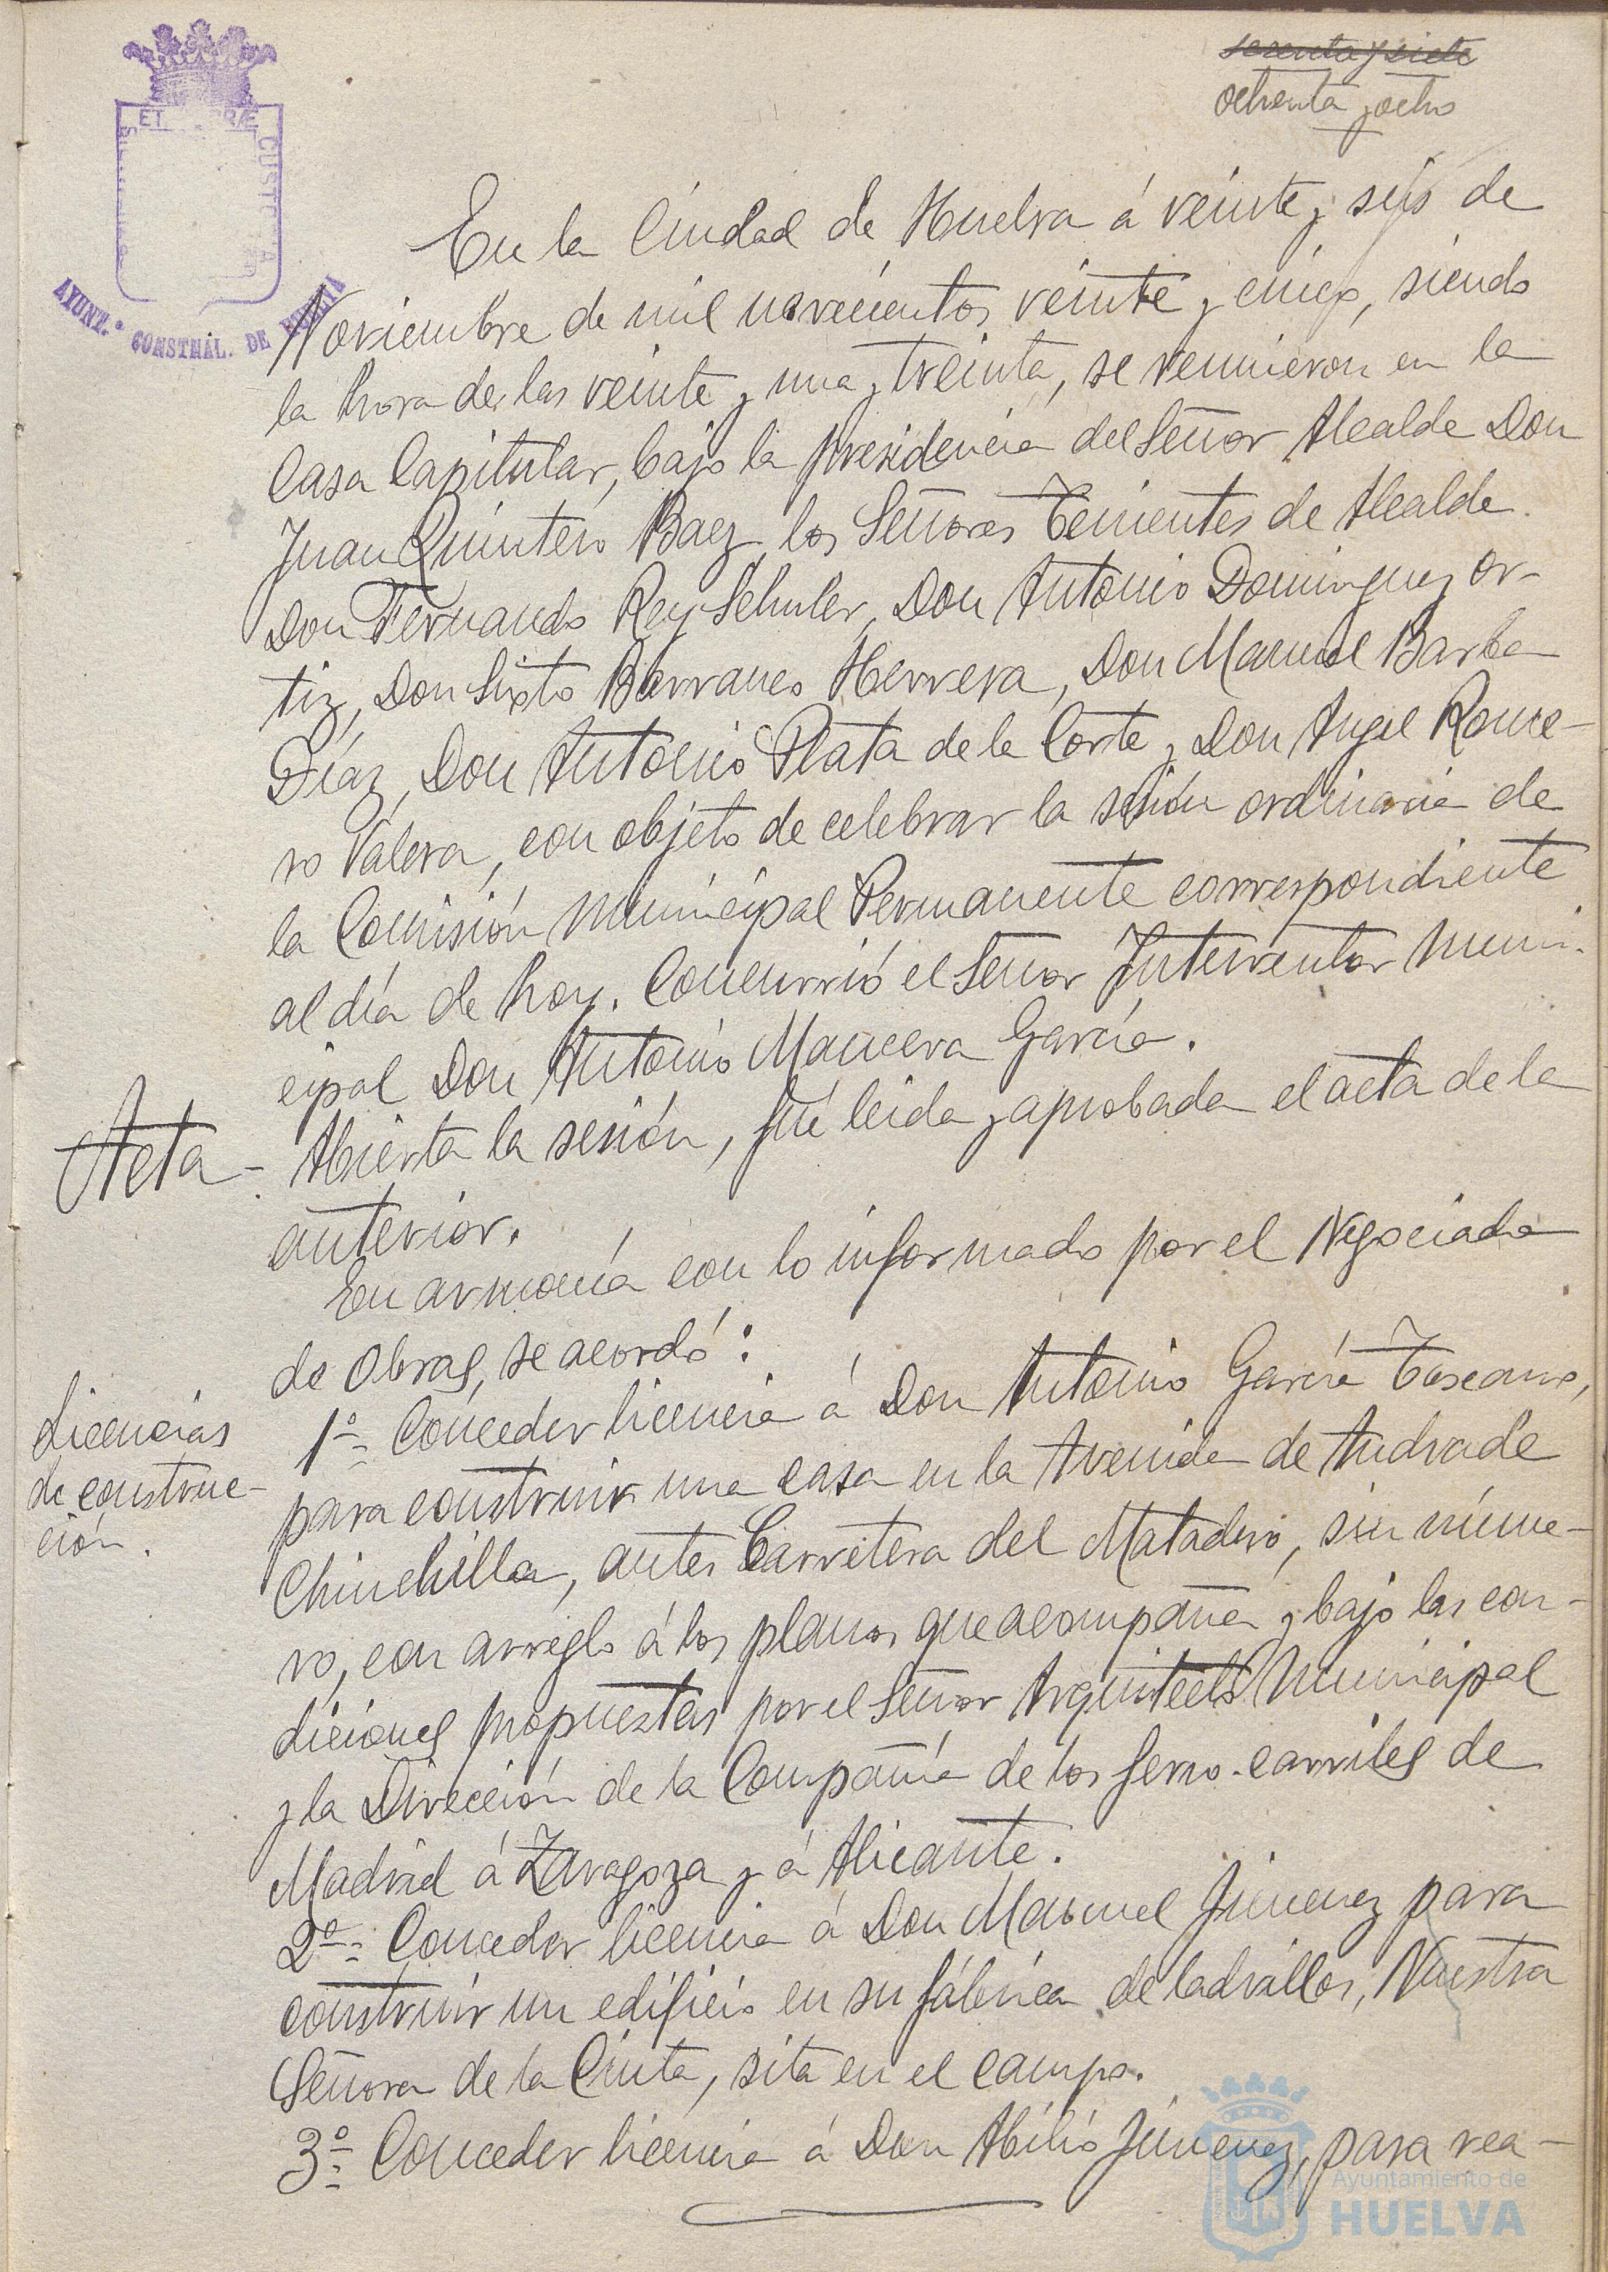 sesenta y siete
ochenta y ocho
ET TERRÆ CUSTODIA
AYUNT.º CONSTNÁL. DE HUELVA
En la Ciudad de Huelva á veinte y seis de
Noviembre de mil novecientos veinte y cinco, siendo
la hora de las veinte y una y treinta, se reunieron en la
Casa Capitular, bajo la presidencia del Señor Alcalde Don
Juan Quintero Baez, los Señores Tenientes de Alcalde
Don Fernando Rey Schuler, Don Antonio Dominguez Or-
tiz, Don Sixto Barranco Herrera, Don Manuel Barba
Díaz, Don Antonio Plata de la Corte y Don Angel Rome-
ro Valera, con objeto de celebrar la sesión ordinaria de
la Comisión Municipal Permanente correspondiente
al día de hoy. Concurrió el Señor Interventor Muni-
cipal Don Antonio Mancera García.
Acta- Abierta la sesión, fué leida y aprobada el acta de la
anterior.
En armonía con lo informado por el Negociado
de Obras, se acordó:
Licencias
de construc-
ción.
1º- Conceder licencia á Don Antonio García Toscano,
para construir una casa en la Avenida de Andrade
Chinchilla, antes Carretera del Matadero, sin núme-
ro, con arreglo á los planos que acompaña y bajo las con-
diciones propuestas por el Señor Arquitecto Municipal
y la Dirección de la Compañía de los ferro-carriles de
Madrid á Zaragoza y á Alicante.
2º- Conceder licencia á Don Manuel Jimenez para
construir un edificio en su fábrica de ladrillos, Nuestra
Señora de la Cinta, sita en el campo.
3º- Conceder licencia á Don Abilio Jimenez, para rea-
Ayuntamiento de
HUELVA